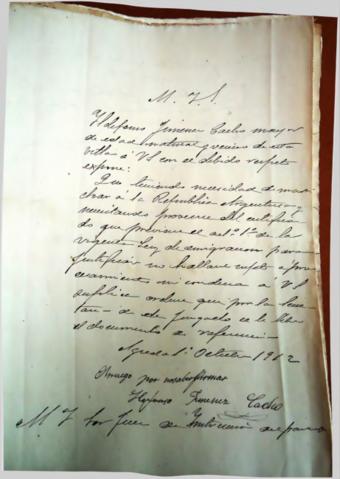 M. I. S.
Ildefonso Jimenez Cacho mayor
de edad natural y vecino de esta
villa á VS con el debido respeto
expone:
Que teniendo necesidad de mar
char á la Republica Argentina y
necesitando proveerse del certifica
do que previene el art. 1º de la
vigente Ley de emigracion para
justificar no hallarse sujeto a pro
cesamiento ni condena a VS
suplica ordene que por la Secre
taria de ese Juzgado se le libre
el documento de referencia
Agreda 1º Octubre 1912
A ruego por no saber firmar
Jimenez Cacho
M. I. Sor Juez de Instruccion de